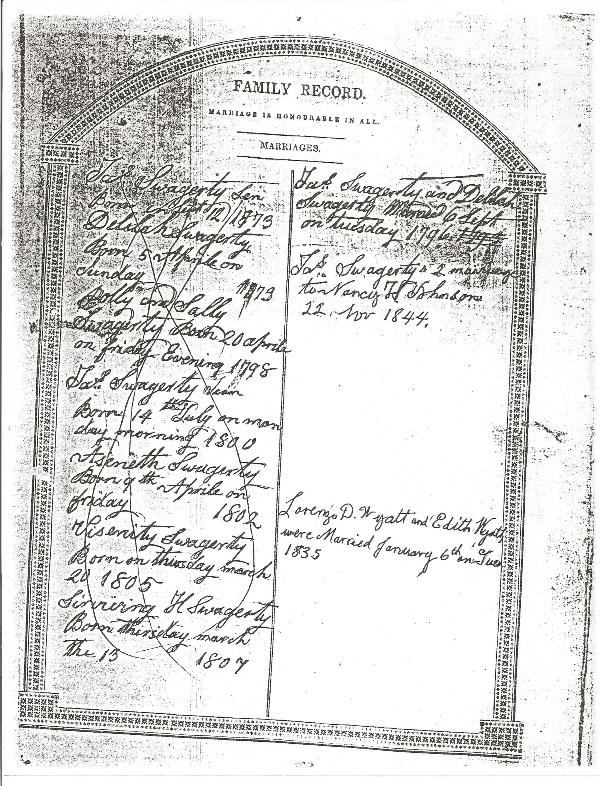 FAMILY RECORD.
MARRIAGE IS HONOURABLE IN ALL.
MARRIAGES.
Jas. Swagerty Sen
Born 12 1773
Delilah Swagerty
Born 5 Aprile on
Sunday 1779
Polly and Sally
Swagerty Born 20 aprile
on friday Evening 1798
Jas. Swagerty
Born 14th July on mon
day morning 1800
Aseneth Swagerty
Born 9th Aprile on
friday 1802
Visenity Swagerty
Born on thursday march
20 1805
H Swagerty
Born thursday march
the 13 1807
Jas. Swagerty and Delilah
Swagerty Married 6 Sept
on tuesday 1796
Jas. Swagerty 2 marriage
to Nancy H Johnson
22 Nov 1844.
Lorenzo D. Wyatt and Edith Wyatt
were Married January 6th on Tues
1835